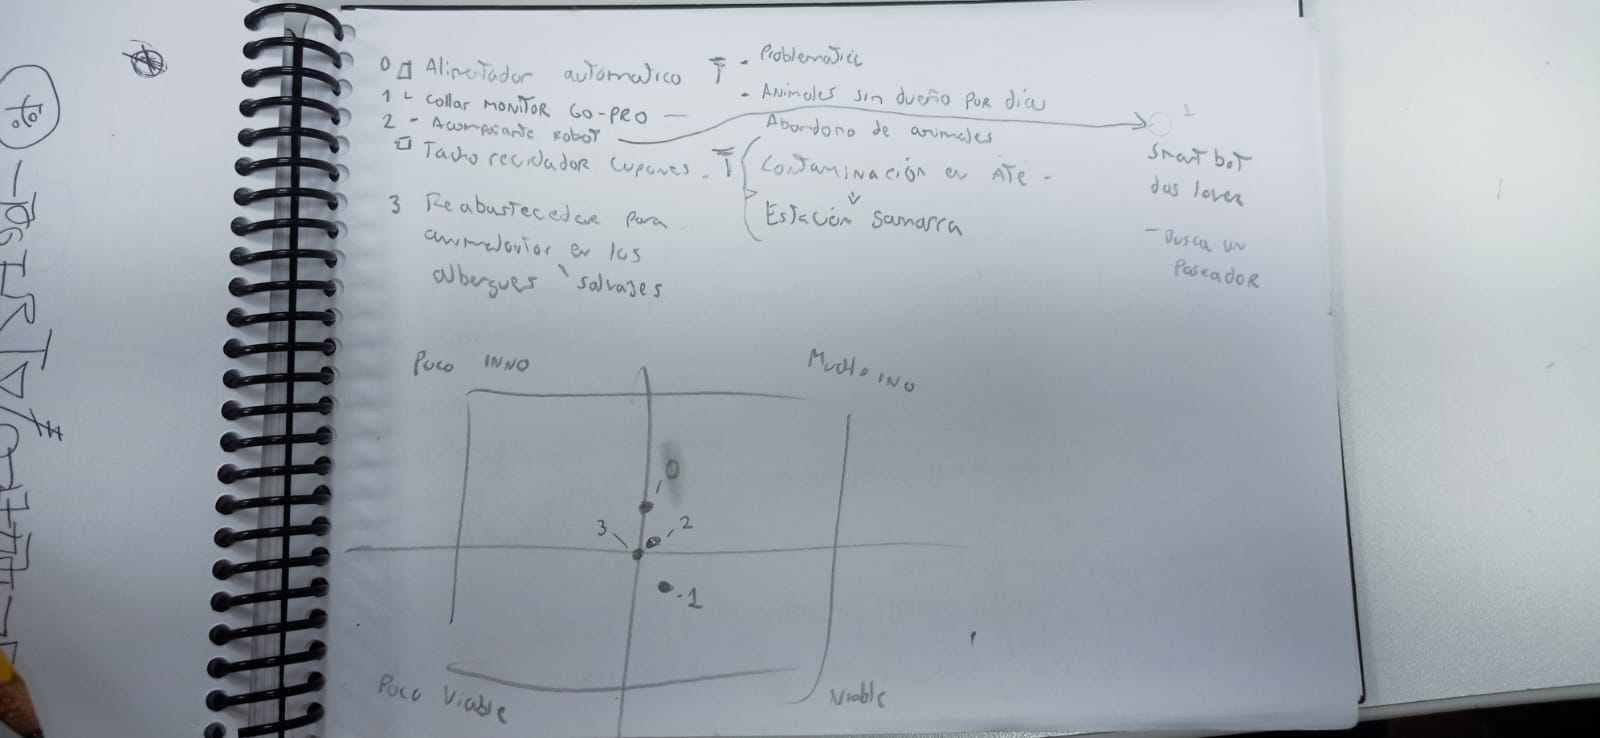 0 Alimetador automatico T
1 - Collar MONITOR GO-PRO -
2 - Acompañante Robot
Tacho reciclador cupones. T
3 Reabastecedor para
animalovior en los
albergues salvajes
- Problematica
- Animales sin dueño por días
Abandono de animales
Contaminación en Ate -
Estación
1
Smart bot
das lover
- Busca un
Paseador
Poco INNO
Mucho INO
0
3
2
- 1
Poco Viable
Viable